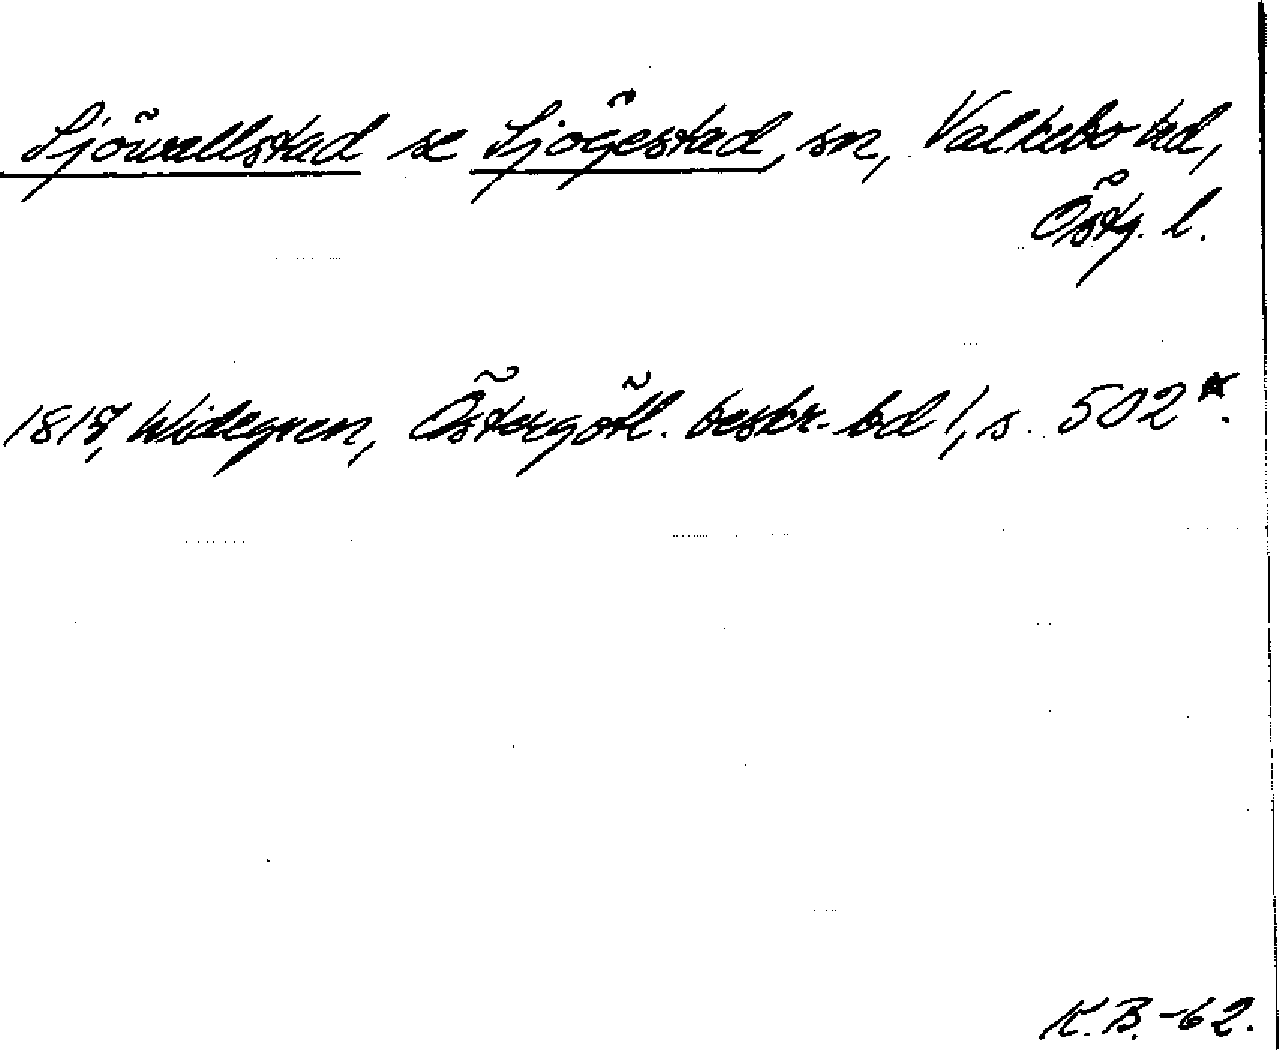 Sjöwallstad se Sjögestad, sn, Valkebo hd,
Östg. l.
Widegren, Östergötl. beskr. bd 1, s. 502*.
K.B.-62.